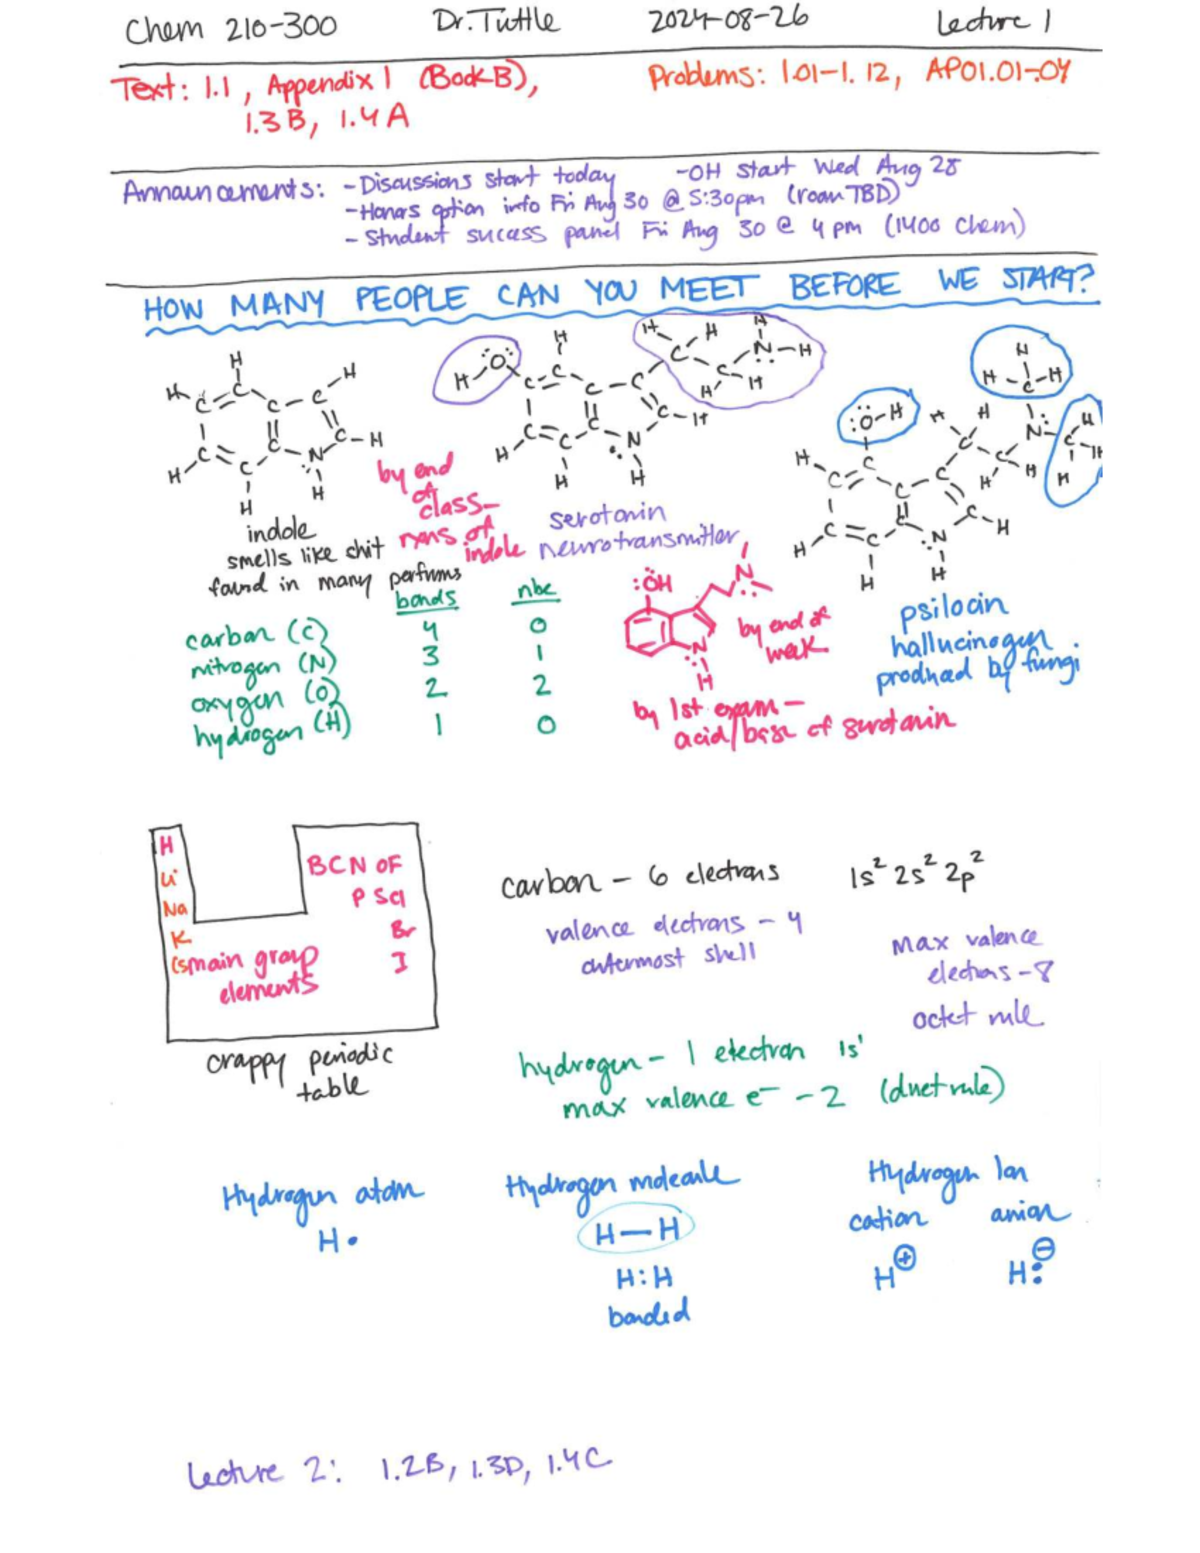 Chem 210-300 Dr. Tuttle 2024-08-26 Lecture 1
Text: 1.1, Appendix 1 (Book B),
1.3B, 1.4A
Problems: 1.01-1.12, AP01.01-.04
Announcements: - Discussions start today - OH start Wed Aug 28
- Honors option info Fri Aug 30 @ 5:30pm (room TBD)
- Student success panel Fri Aug 30 @ 4 pm (1400 Chem)
HOW MANY PEOPLE CAN YOU MEET BEFORE WE START?
indole
smells like shit
found in many perfums
by end
of
class-
rxns of
indole
serotonin
neurotransmitter
psilocin
hallucinogen
produced by fungi
bonds nbe
carbon (C) 4 0
nitrogen (N) 3 1
oxygen (O) 2 2
hydrogen (H) 1 0
:ÖH
N
N
H
by end of
week
by 1st exam -
acid/base of serotonin
H
Li
Na
K
Cs
B C N O F
P S Cl
Br
I
main group
elements
crappy periodic
table
carbon - 6 electrons 1s² 2s² 2p²
valence electrons - 4
outermost shell
max valence
electrons - 8
octet rule
hydrogen - 1 electron 1s¹
max valence e⁻ - 2 (duet rule)
Hydrogen atom
H•
Hydrogen molecule
H—H
H:H
bonded
Hydrogen Ion
cation anion
H⊕ H:⊖
Lecture 2: 1.2B, 1.3D, 1.4C